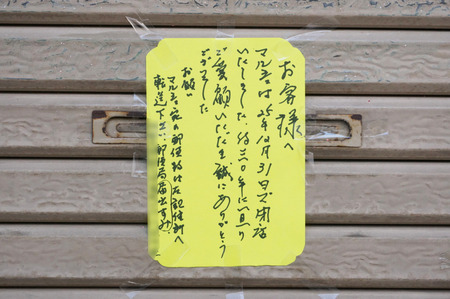 お客様へ
マルヨシは25年10月31日で閉店
いたしました。約三〇年に亘り
ご愛顧いただき誠にありがとう
ございました
お願い
マルヨシ宛の郵便物は左記住所へ
転送下さい、郵便局届出ずみ。